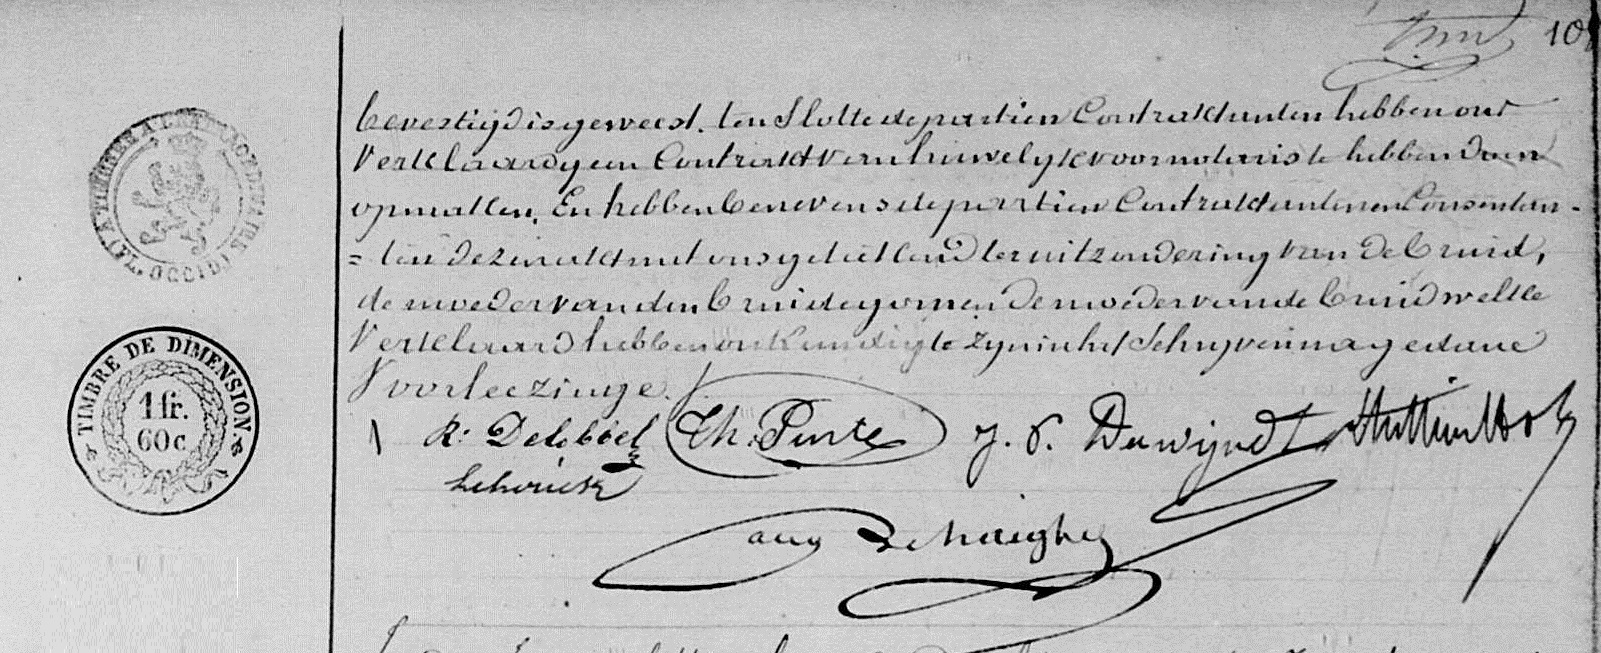 10
bevestigd is geweest. ten Slotte de partien Contraktanten hebben ons
Verklaard geen Contrakt van huwelyk voor notaris te hebben doen
opmaken. En hebben benevens de partien Contraktanten en Consentan-
=ten deze nakt met ons geteekend ter uitzondering van de bruid,
de moeder van den bruidegom en de moeder van de bruid welke
Verklaard hebben onkundig te zyn in het Schryven na gedane
Voorleezinge.
TIMBRE DE DIMENSION
1 fr.
60 c.
R: Delobbel Th. Purte J. S. Dewijndt
Aug